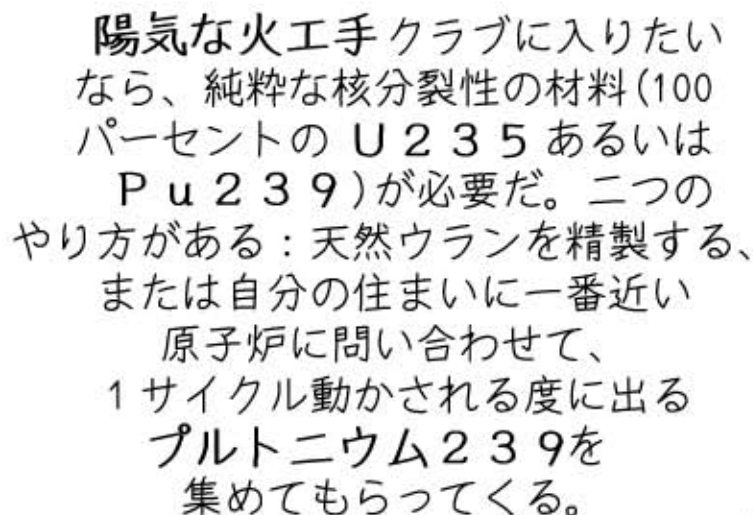 陽気な火工手クラブに入りたい
なら、純粋な核分裂性の材料(100
パーセントのU235あるいは
Pu239)が必要だ。二つの
やり方がある:天然ウランを精製する、
または自分の住まいに一番近い
原子炉に問い合わせて、
1サイクル動かされる度に出る
プルトニウム239を
集めてもらってくる。